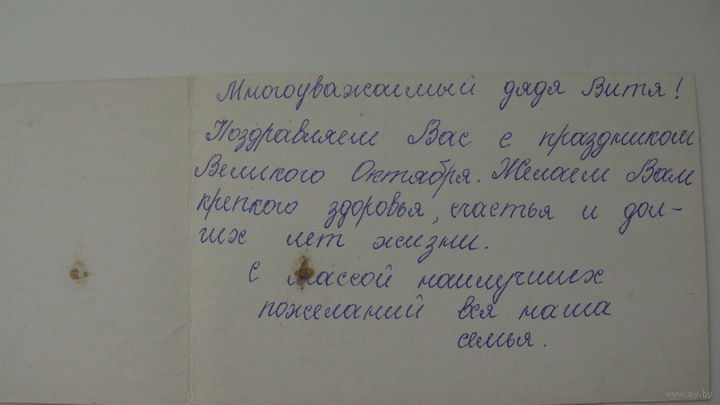 Многоуважаемый дядя Витя!
Поздравляем Вас с праздником
Великого Октября. Желаем Вам
крепкого здоровья, счастья и дол-
гих лет жизни.
С массой наилучших
пожеланий вся наша
семья.
www.ay.by